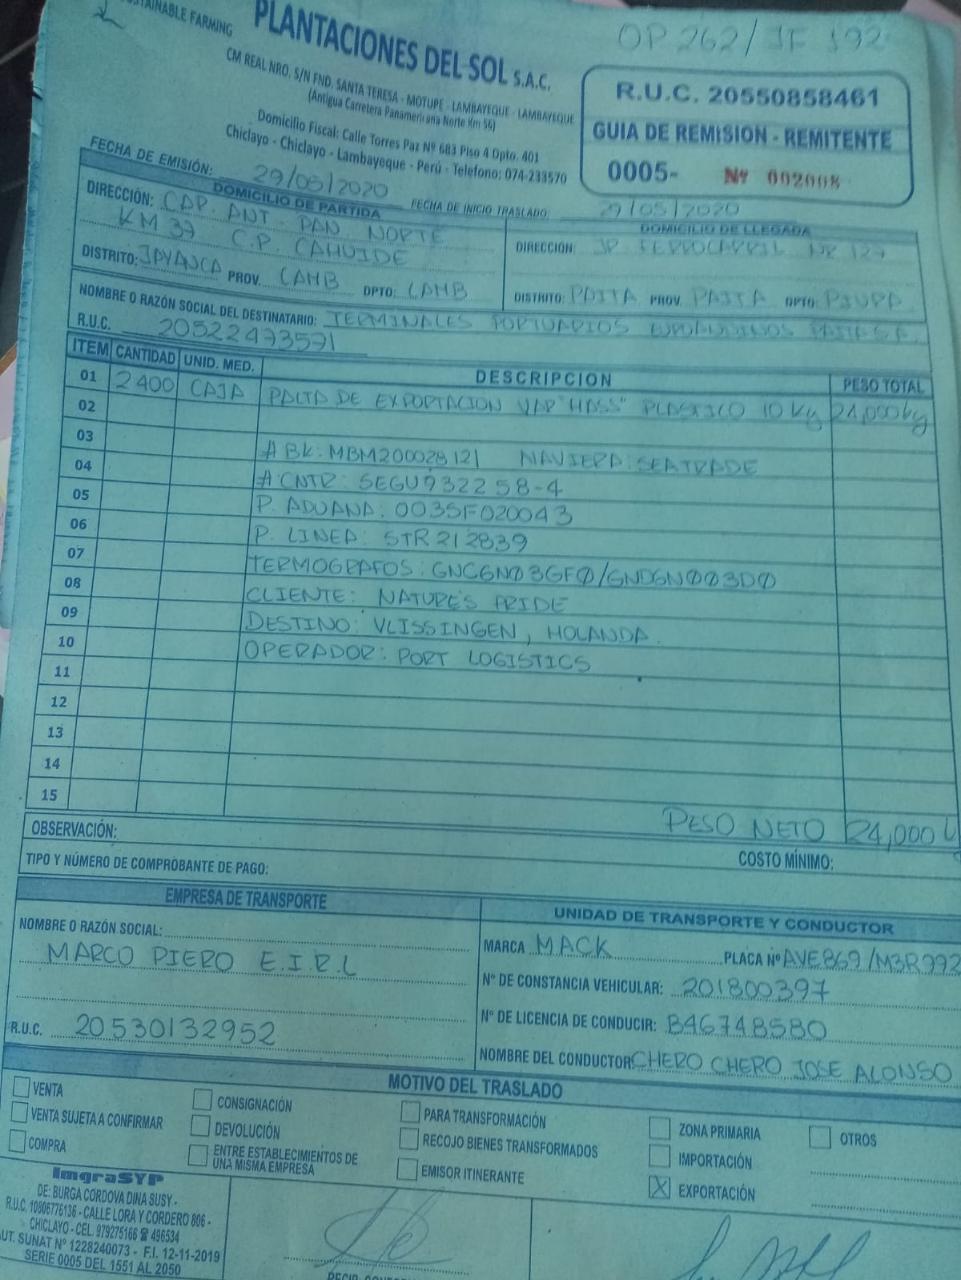 SUSTAINABLE FARMING
PLANTACIONES DEL SOL S.A.C.
CM REAL NRO, S/N FND. SANTA TERESA - MOTUPE - LAMBAYEQUE - LAMBAYEQUE
(Antigua Carretera Panamericana Norte Km 56)
Domicilio Fiscal: Calle Torres Paz Nº 683 Piso 4 Dpto. 401
Chiclayo - Chiclayo - Lambayeque - Perú - Telefono: 074-233570
OP 262/ IF 192
R.U.C. 20550858461
GUIA DE REMISION - REMITENTE
0005- Nº 002008
FECHA DE EMISIÓN: 29/05/2020
FECHA DE INICIO TRASLADO: 29/05/2020
DOMICILIO DE PARTIDA
DIRECCIÓN: CAR. ANT. PAN. NORTE
KM 37 C.P. CAHUIDE
DISTRITO: JAYANCA PROV. LAMB DPTO: LAMB
DOMICILIO DE LLEGADA
DIRECCIÓN: JR. FERROCARRIL NR 127
DISTRITO: PAITA PROV. PAITA DPTO: PIURA
NOMBRE O RAZÓN SOCIAL DEL DESTINATARIO: TERMINALES PORTUARIOS EUROANDINOS PAITA S.A.
R.U.C. 20522473571
ITEM CANTIDAD UNID. MED. DESCRIPCION PESO TOTAL
01 2400 CAJA PALTA DE EXPORTACION VAR "HASS" PLASTICO 10 Kg 24,000 kg
02
03 # BK: MBM200028121 NAVIERA: SEATRADE
04 # CNTR: SEGU932258-4
05 P. ADUANA: 0035F020043
06 P. LINEA: STR212839
07 TERMOGRAFOS: GNCGN03GF0/GNDGN003D0
08 CLIENTE: NATURE'S PRIDE
09 DESTINO: VLISSINGEN, HOLANDA.
10 OPERADOR: PORT LOGISTICS
11
12
13
14
15
PESO NETO 24,000
OBSERVACIÓN:
TIPO Y NÚMERO DE COMPROBANTE DE PAGO:
COSTO MÍNIMO:
EMPRESA DE TRANSPORTE
NOMBRE O RAZÓN SOCIAL:
MARCO PIERO E.I.R.L
R.U.C. 20530132952
UNIDAD DE TRANSPORTE Y CONDUCTOR
MARCA MACK PLACA Nº AVE869/M3R992
Nº DE CONSTANCIA VEHICULAR: 201800397
Nº DE LICENCIA DE CONDUCIR: B46748580
NOMBRE DEL CONDUCTOR CHERO CHERO JOSE ALONSO
MOTIVO DEL TRASLADO
VENTA
VENTA SUJETA A CONFIRMAR
COMPRA
CONSIGNACIÓN
DEVOLUCIÓN
ENTRE ESTABLECIMIENTOS DE
UNA MISMA EMPRESA
PARA TRANSFORMACIÓN
RECOJO BIENES TRANSFORMADOS
EMISOR ITINERANTE
ZONA PRIMARIA
IMPORTACIÓN
X EXPORTACIÓN
OTROS
ImgraSYP
DE: BURGA CORDOVA DINA SUSY -
R.U.C. 10806776136 - CALLE LORA Y CORDERO 806 -
CHICLAYO - CEL. 979275166 ☎ 496534
AUT. SUNAT Nº 1228240073 - F.I. 12-11-2019
SERIE 0005 DEL 1551 AL 2050